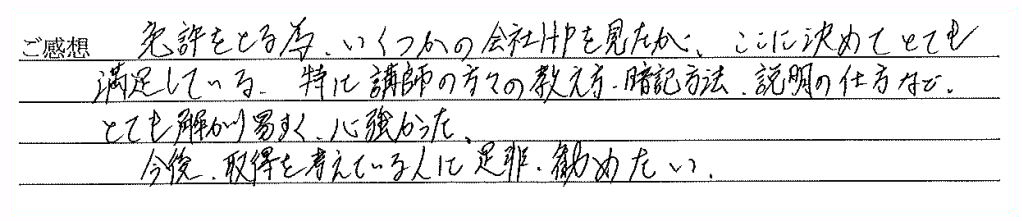 ご感想 免許をとる為、いくつかの会社HPを見たが、ここに決めてとても
満足している。特に講師の方々の教え方、暗記方法、説明の仕方など、
とても解かり易すく、心強かった。
今後、取得を考えている人に是非、勧めたい。